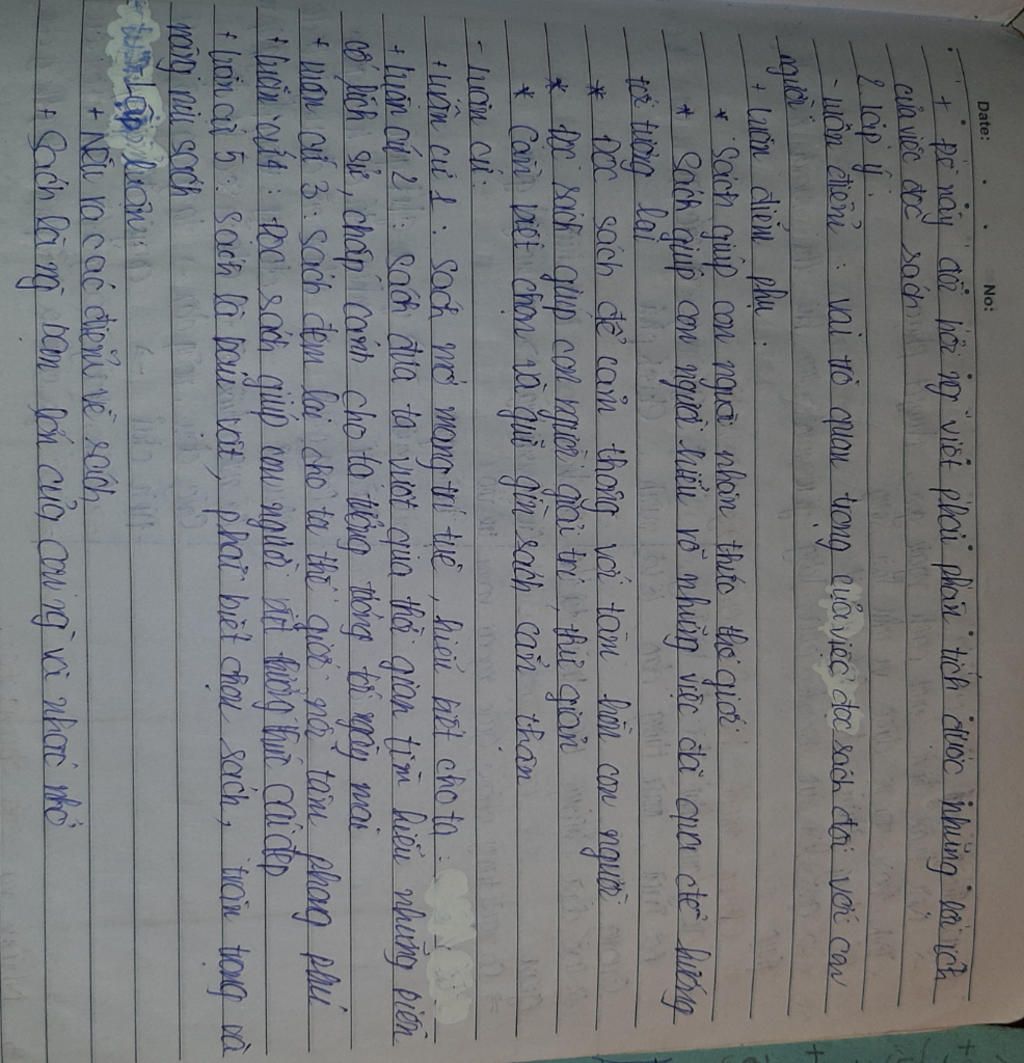 Date: No:
+ Đề này đòi hỏi ng viết phải phân tích được những lợi ích
của việc đọc sách
2. lập ý
- luận điểm: vai trò quan trọng của việc đọc sách đối với con
người
+ luận điểm phụ:
* Sách giúp con người nhận thức thế giới
* Sách giúp con người hiểu rõ những việc đã qua để hướng
tới tương lai
* Đọc sách để cảm thông với tâm hồn con người
* Đọc sách giúp con người giải trí, thư giãn
* Cần biết chọn và giữ gìn sách cẩn thận
- luận cứ:
+ luận cứ 1: sách mở mang trí tuệ, hiểu biết cho ta
+ luận cứ 2: sách đưa ta vượt qua thời gian tìm hiểu những biến
cố lịch sử, chấp cánh cho ta tưởng tượng tới ngày mai
+ luận cứ 3: sách đem lại cho ta thế giới nội tâm phong phú
+ luận cứ 4: đọc sách giúp con người thưởng thức cái đẹp
+ luận cứ 5: sách là báu vật, phải biết chọn sách, trân trọng và
nâng niu sách
lập luận:
+ Nêu ra các điểm về sách
+ Sách là ng bạn lớn của con ng và nhắc nhở